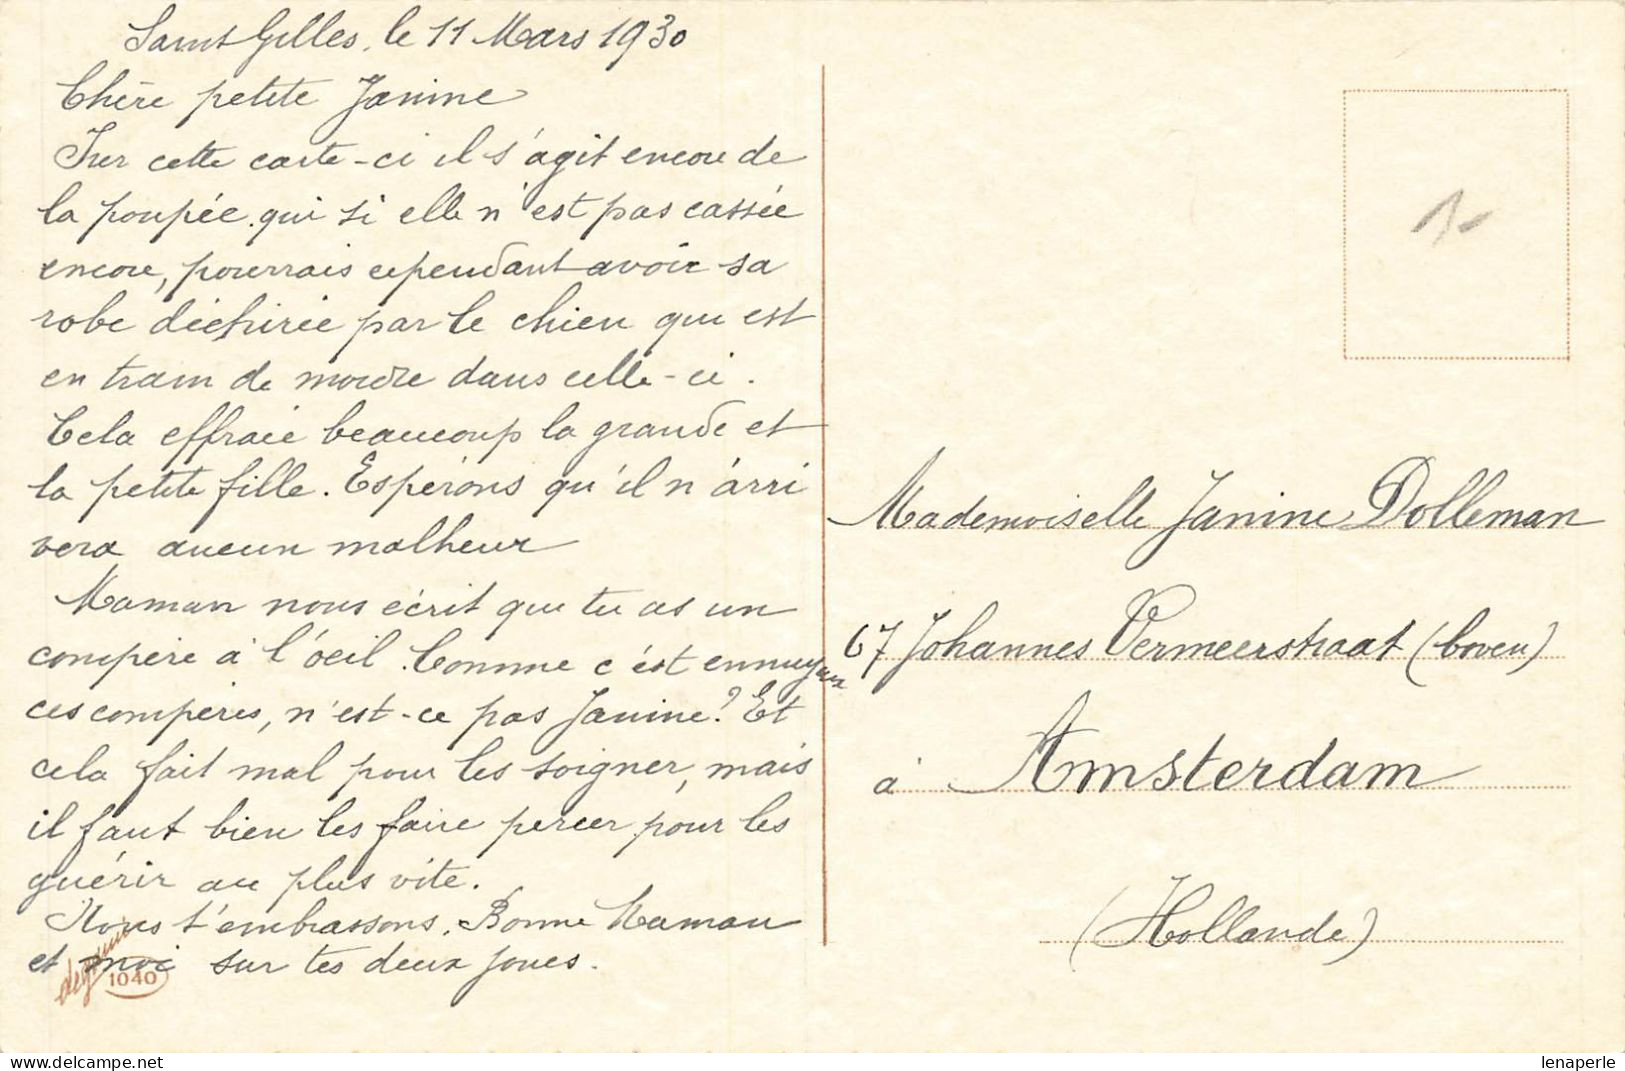 Saint Gilles, le 11 Mars 1930
Chère petite Janine
Sur cette carte-ci il s'agit encore de
la poupée, qui si elle n'est pas cassée
encore, pourrais cependant avoir sa
robe déchirée par le chien qui est
en train de mordre dans celle-ci.
Cela effraie beaucoup la grande et
la petite fille. Espérons qu'il n'arri
vera aucun malheur
Maman nous écrit que tu as un
compère à l'oeil. Comme c'est ennuyeux
ces compères, n'est-ce pas Janine? Et
cela fait mal pour les soigner, mais
il faut bien les faire percer, pour les
guérir au plus vite.
Nous t'embrassons, Bonne Maman
et moi sur tes deux joues.
1040
Mademoiselle Janine Dolleman
67 Johannes Vermeerstraat (boven)
à Amsterdam
(Hollande)
lenaperle